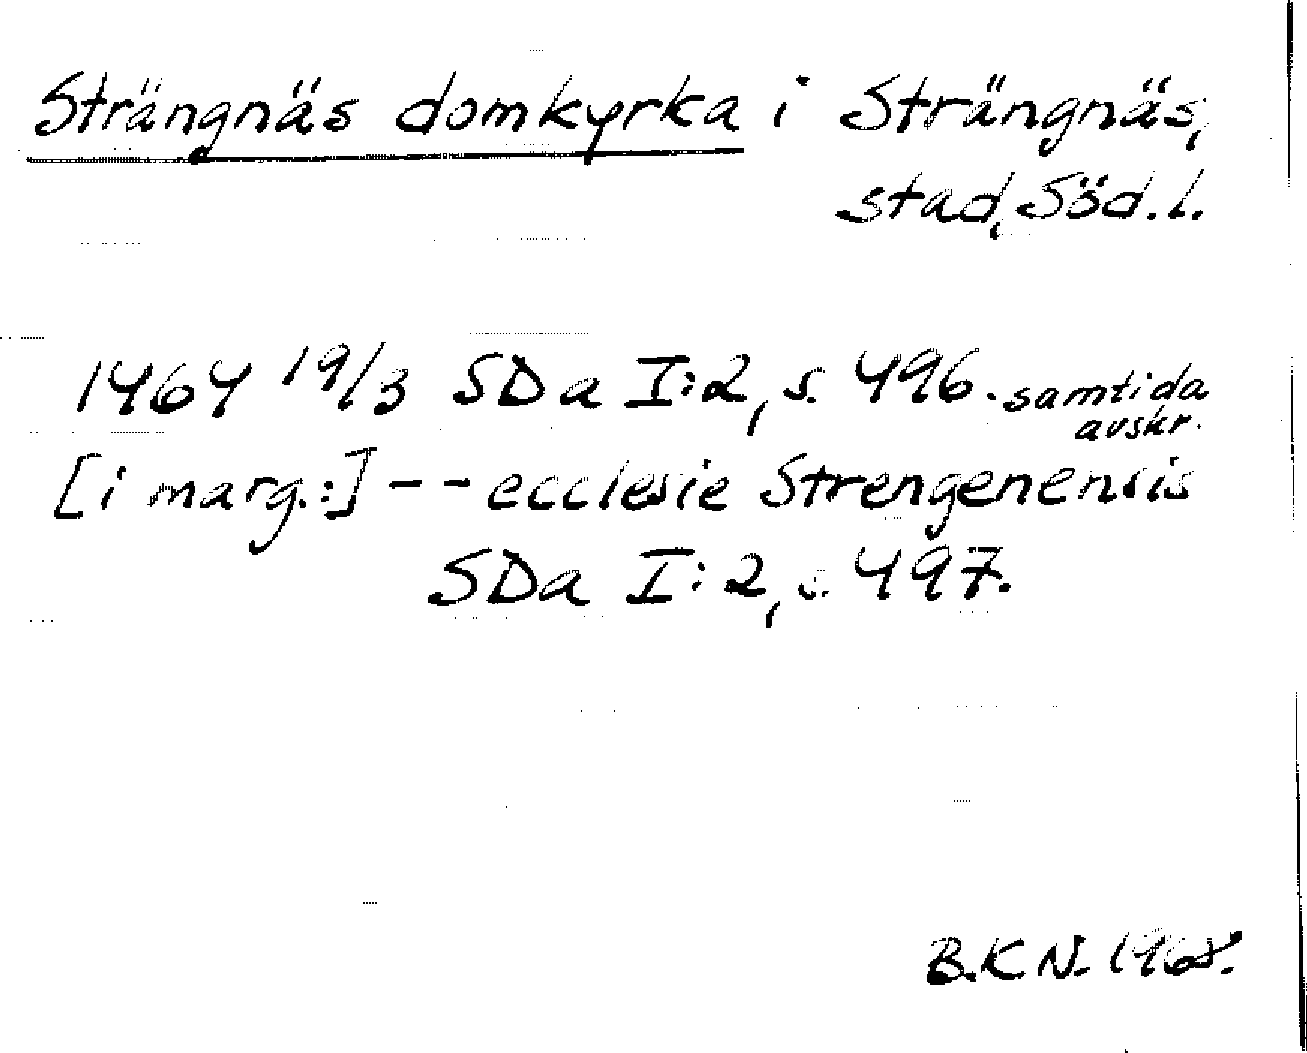 Strängnäs domkyrka i Strängnäs,
stad, Söd.l.
1464 19/3 SDa I:2, s. 496. samtida
avskr.
[i marg.:] -- ecclesie Strengenensis
SDa I:2, s. 497.
B.K N. 1968.